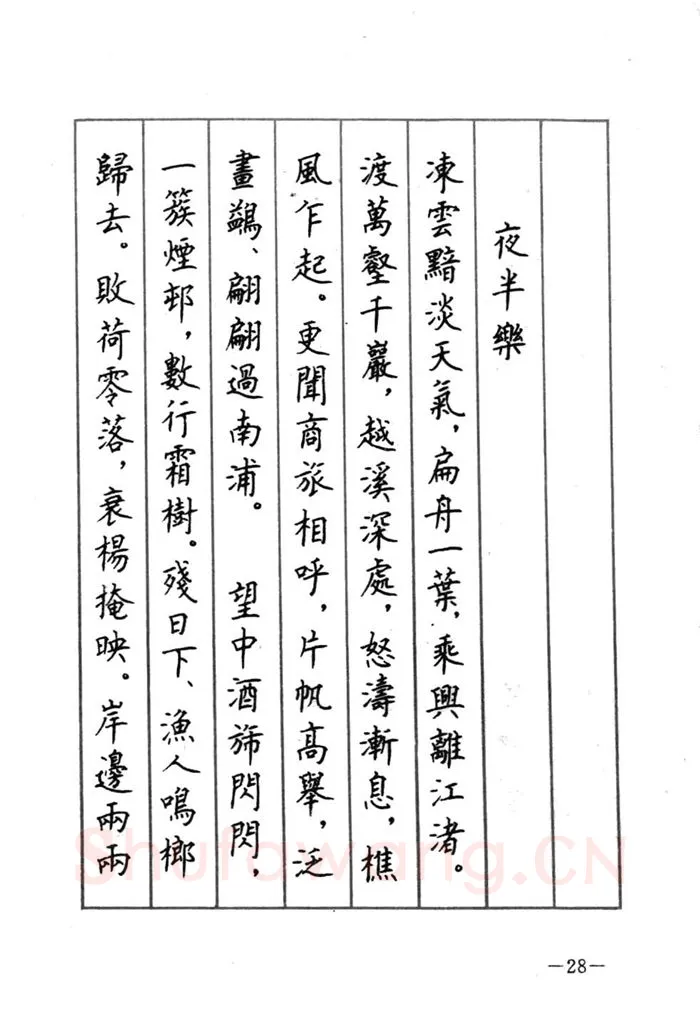 夜半樂
凍雲黯淡天氣，扁舟一葉，乘興離江渚。
渡萬壑千巖，越溪深處，怒濤漸息，樵
風乍起。更聞商旅相呼，片帆高舉，泛
畫鷁、翩翩過南浦。 望中酒斾閃閃，
一簇煙邨，數行霜樹。殘日下、漁人鳴榔
歸去。敗荷零落，衰楊掩映。岸邊兩兩
Shufawang.CN
—28—